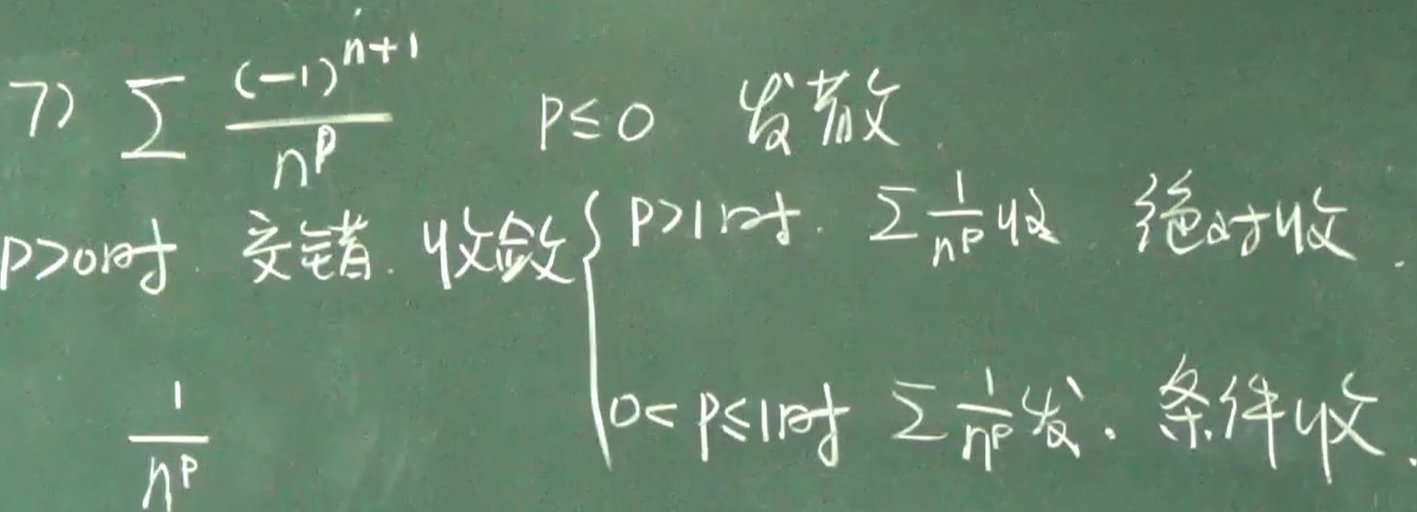 7) ∑ (-1)^{n+1} / n^p  p≤0 发散
p>0时. 交错. 收敛 { p>1时. ∑ 1/n^p 收 绝对收.
0<p≤1时 ∑ 1/n^p 发. 条件收.
1/n^p